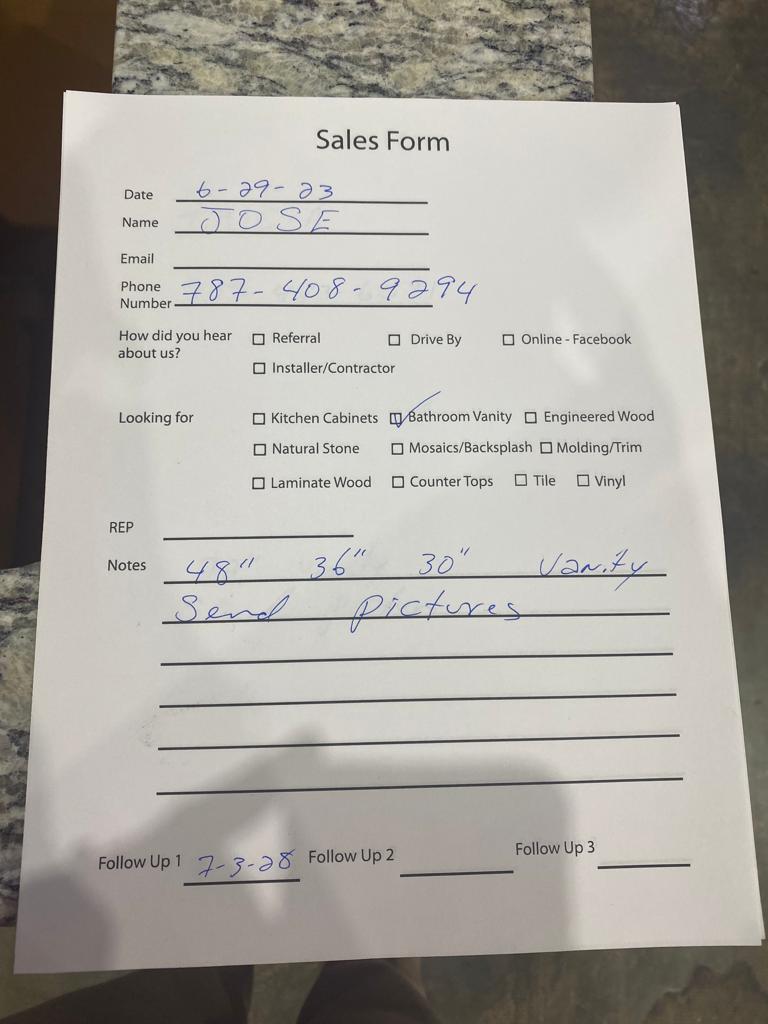 Sales Form
Date 6-29-23
Name JOSE
Email
Phone Number 787-408-9294
How did you hear about us? ☐ Referral ☐ Drive By ☐ Online - Facebook
☐ Installer/Contractor
Looking for ☐ Kitchen Cabinets ☑ Bathroom Vanity ☐ Engineered Wood
☐ Natural Stone ☐ Mosaics/Backsplash ☐ Molding/Trim
☐ Laminate Wood ☐ Counter Tops ☐ Tile ☐ Vinyl
REP
Notes 48" 36" 30" Vanity
Send pictures
Follow Up 1 7-3-28 Follow Up 2 Follow Up 3